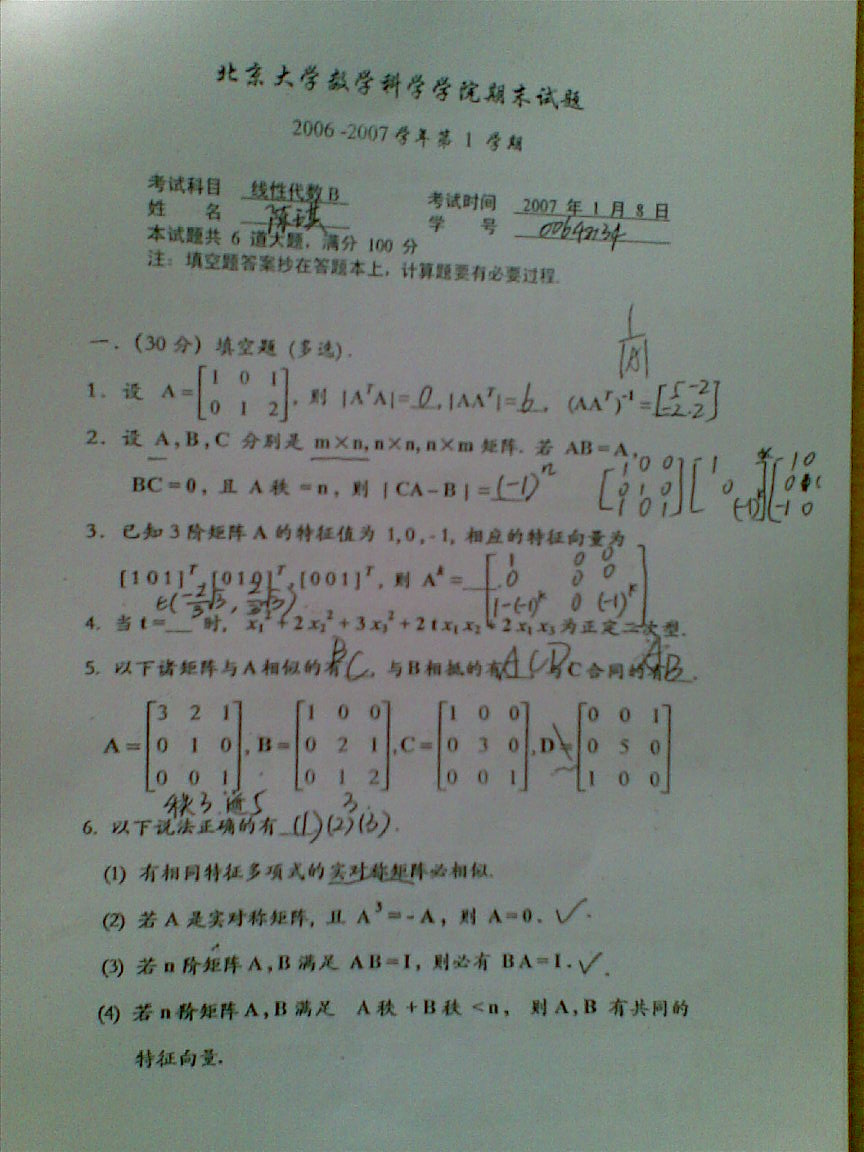 北京大学数学科学学院期末试题
2006-2007学年第 1 学期
考试科目 线性代数 B 考试时间 2007 年 1 月 8 日
姓 名 陈琪 学 号 00642134
本试题共 6 道大题，满分 100 分
注：填空题答案抄在答题本上，计算题要有必要过程.
1/|A|
一.（30 分）填空题（多选）.
1. 设 A=[1 0 1; 0 1 2], 则 |AᵀA|=0, |AAᵀ|=6, (AAᵀ)⁻¹=[5 -2; -2 2]
2. 设 A,B,C 分别是 m×n, n×n, n×m 矩阵. 若 AB=A,
BC=0, 且 A秩=n, 则 |CA-B|=(-1)ⁿ
3. 已知 3 阶矩阵 A 的特征值为 1,0,-1, 相应的特征向量为
[1 0 1]ᵀ, [0 1 0]ᵀ, [0 0 1]ᵀ, 则 Aᵏ=[1 0 0; 0 0 0; 1-(-1)ᵏ 0 (-1)ᵏ]
4. 当 t=__ 时, x₁²+2x₂²+3x₃²+2t x₁x₂+2x₁x₃为正定二次型.
5. 以下诸矩阵与A相似的有BC, 与B相抵的有ACD, 与C合同的有AB.
A=[3 2 1; 0 1 0; 0 0 1], B=[1 0 0; 0 2 1; 0 1 2], C=[1 0 0; 0 3 0; 0 0 1], D=[0 0 1; 0 5 0; 1 0 0]
6. 以下说法正确的有 (1)(2)(3).
(1) 有相同特征多项式的实对称矩阵必相似.
(2) 若 A 是实对称矩阵, 且 A³=-A, 则 A=0. ✓
(3) 若 n 阶矩阵 A,B 满足 AB=I, 则必有 BA=I. ✓
(4) 若 n 阶矩阵 A,B 满足 A秩+B秩<n, 则 A,B 有共同的
特征向量.